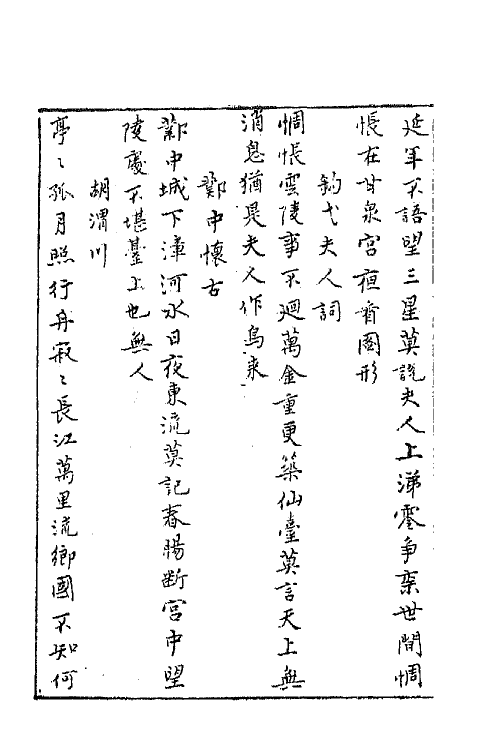 延年不語望三星莫說夫人上涕零爭柰世間惆
悵在甘泉宮夜看圖形
鉤弋夫人詞
惆悵雲陵事不迴萬金重更築仙臺莫言天上無
消息猶是夫人作鳥來
鄴中懷古
鄴中城下漳河水日夜東流莫記春腸斷宮中望
陵處不堪臺上也無人
胡渭川
亭〻孤月照行舟寂〻長江萬里流鄉國不知何